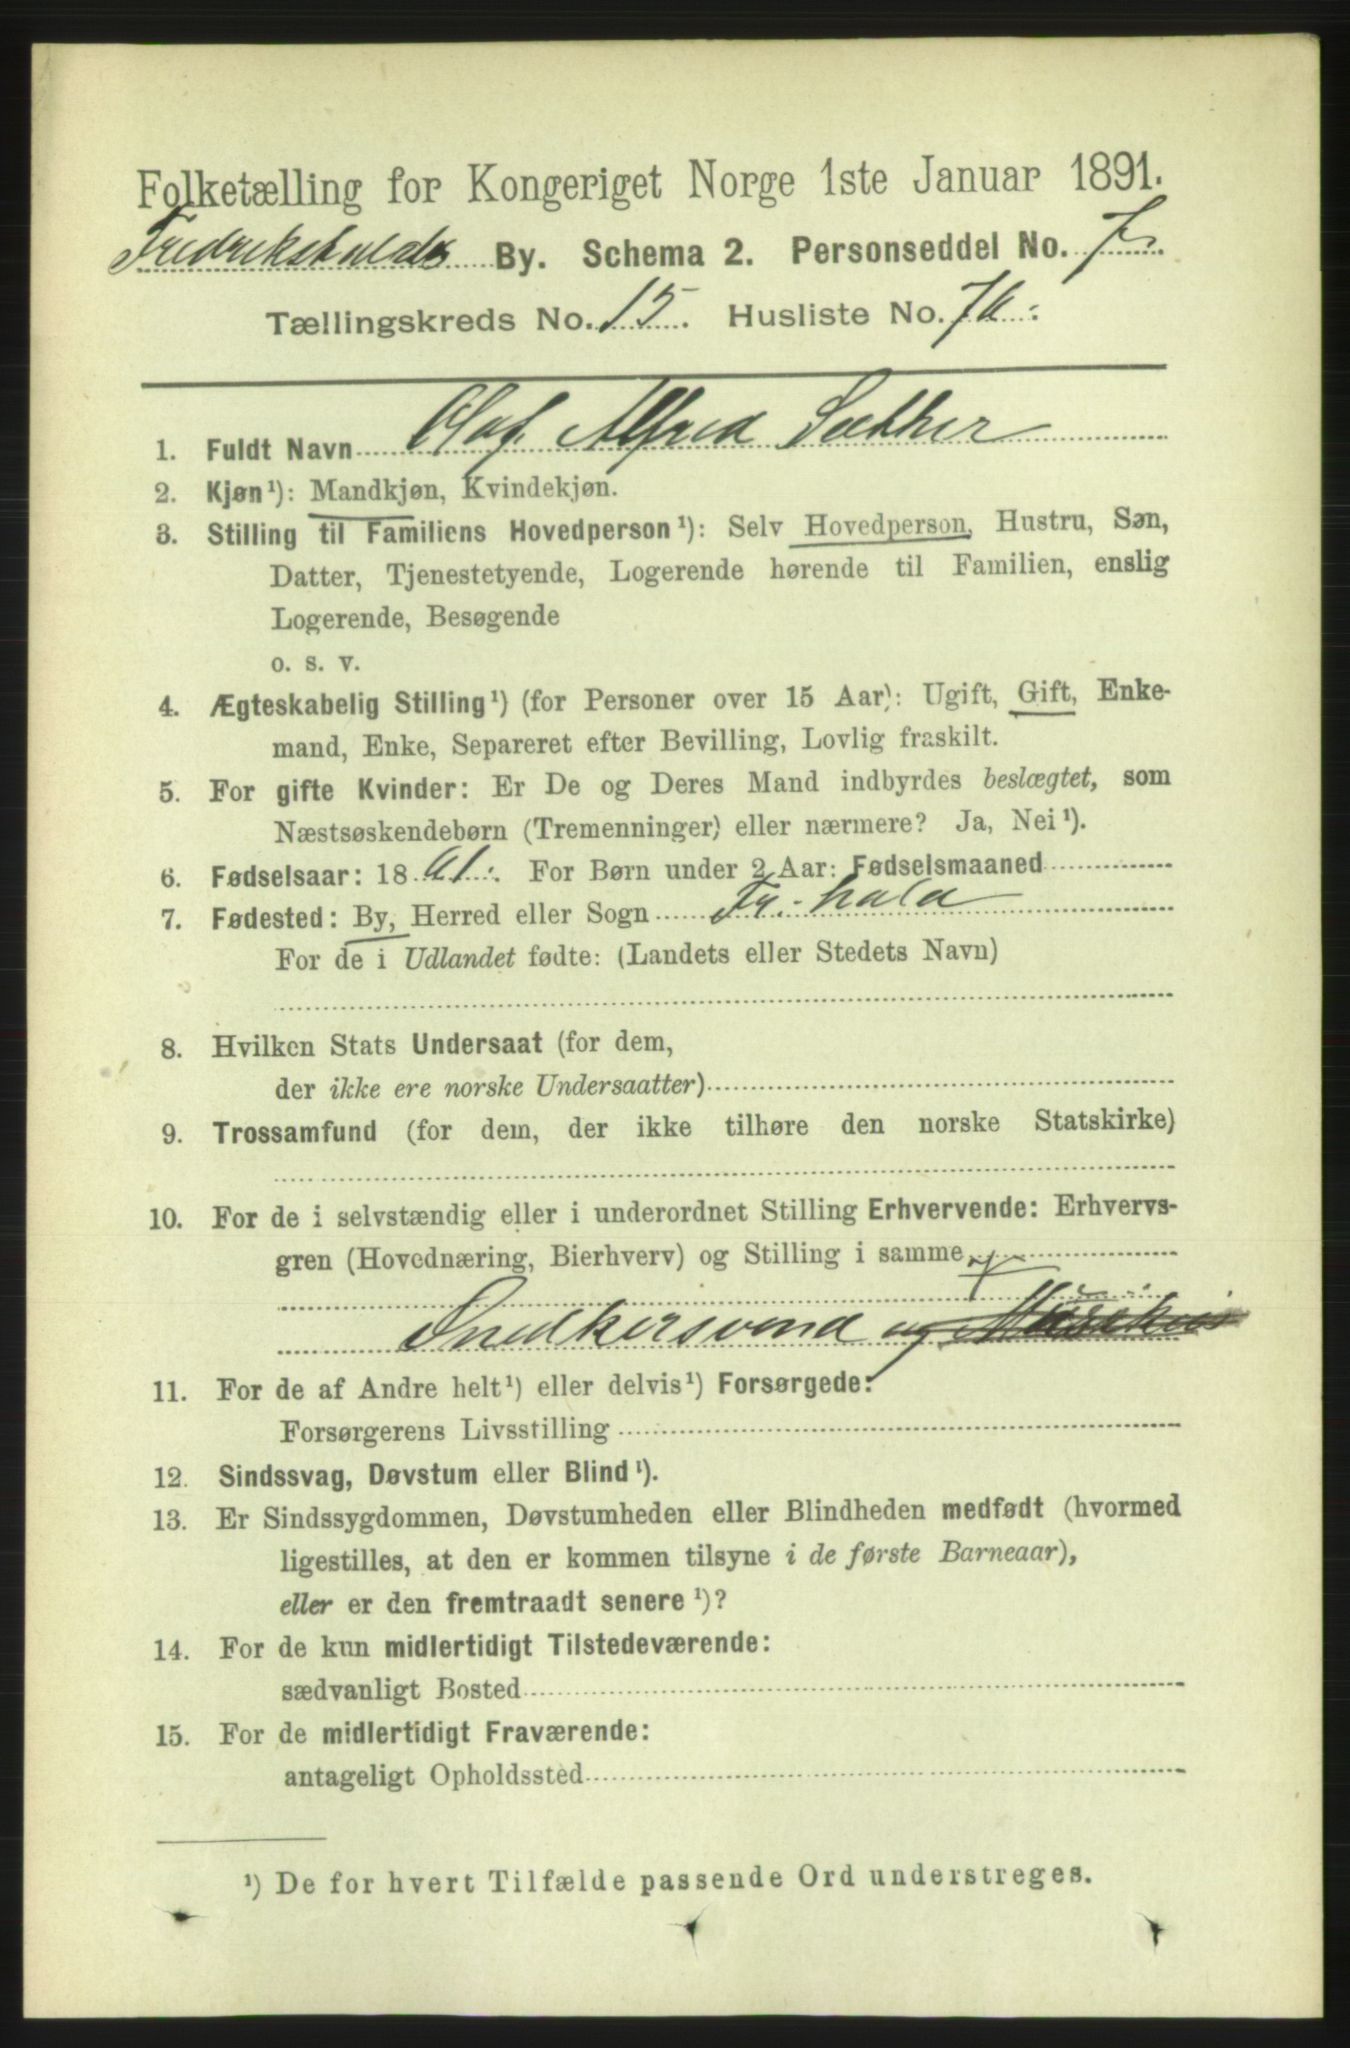 Folketælling for Kongeriget Norge 1ste Januar 1891.
Fredrikshalds By. Schema 2. Personseddel No. 7.
Tællingskreds No. 15. Husliste No. 76.
1. Fuldt Navn Olaf Alfred Sæther
2. Kjøn¹): Mandkjøn, Kvindekjøn.
3. Stilling til Familiens Hovedperson¹): Selv Hovedperson, Hustru, Søn,
Datter, Tjenestetyende, Logerende hørende til Familien, enslig
Logerende, Besøgende
o. s. v.
4. Ægteskabelig Stilling¹) (for Personer over 15 Aar): Ugift, Gift, Enke-
mand, Enke, Separeret efter Bevilling, Lovlig fraskilt.
5. For gifte Kvinder: Er De og Deres Mand indbyrdes beslægtet, som
Næstsøskendebørn (Tremenninger) eller nærmere? Ja, Nei¹).
6. Fødselsaar: 1861. For Børn under 2 Aar: Fødselsmaaned
7. Fødested: By, Herred eller Sogn Fr.hald
For de i Udlandet fødte: (Landets eller Stedets Navn)
8. Hvilken Stats Undersaat (for dem,
der ikke ere norske Undersaatter)
9. Trossamfund (for dem, der ikke tilhøre den norske Statskirke)
10. For de i selvstændig eller i underordnet Stilling Erhvervende: Erhvervs-
gren (Hovednæring, Bierhverv) og Stilling i samme
Snedkersvend og
11. For de af Andre helt¹) eller delvis¹) Forsørgede:
Forsørgerens Livsstilling
12. Sindssvag, Døvstum eller Blind¹).
13. Er Sindssygdommen, Døvstumheden eller Blindheden medfødt (hvormed
ligestilles, at den er kommen tilsyne i de første Barneaar),
eller er den fremtraadt senere¹)?
14. For de kun midlertidigt Tilstedeværende:
sædvanligt Bosted
15. For de midlertidigt Fraværende:
antageligt Opholdssted
¹) De for hvert Tilfælde passende Ord understreges.